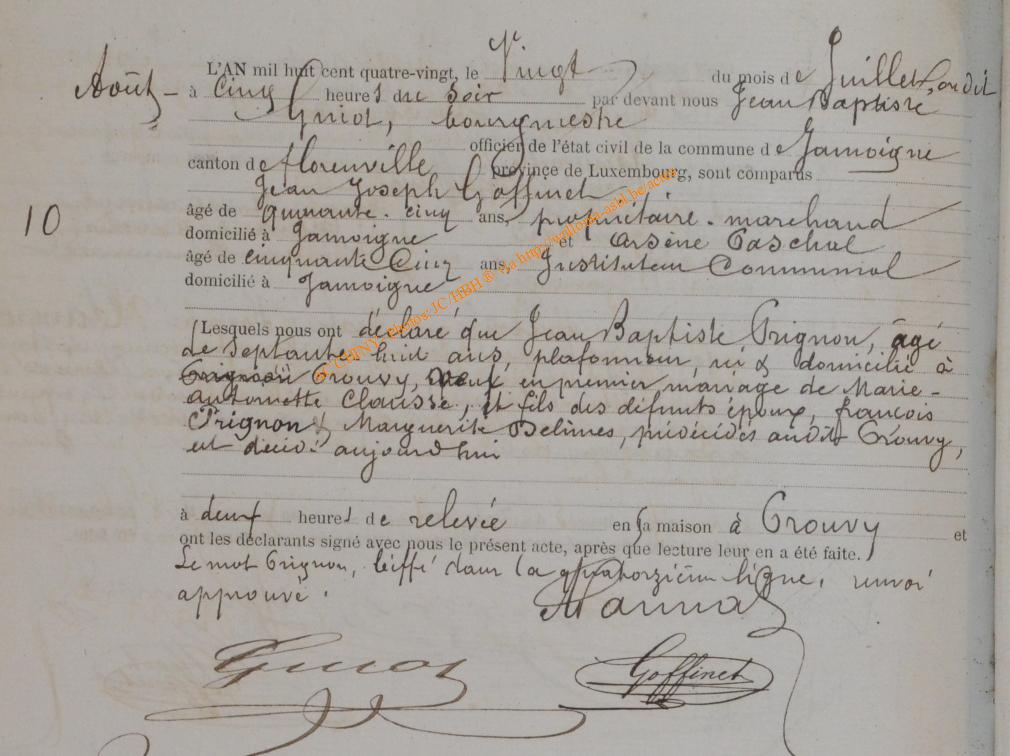 L'AN mil huit cent quatre-vingt, le Vingt du mois de Juillet, ou dit
Août -
à cinq heures du soir par devant nous Jean Baptiste
Guiot, bourgmestre
officier de l'état civil de la commune de Jamoigne
canton de florenville province de Luxembourg, sont comparus
Jean Joseph Goffinet
10
âgé de quarante-cinq ans, propriétaire-marchand
domicilié à Jamoigne et Arsène Paschal
âgé de cinquante cinq ans, Instituteur Communal
domicilié à Jamoigne
Lesquels nous ont déclaré que Jean Baptiste Prignon, âgé
de septante huit ans, plafonneur, né & domicilié à
Prouvy, veuf en premier mariage de Marie-
Antoinette Clausse, et fils des défunts époux, françois
Prignon & Marguerite Delimes, prédécédés audit Prouvy,
est décédé aujourd'hui
à deux heures de relevée en sa maison à Prouvy et
ont les déclarants signé avec nous le présent acte, après que lecture leur en a été faite.
Le mot Prignon, biffé dans la quatorzième ligne, renvoi
approuvé.
Guiot
Goffinet
photos: JC/HBH ® via http://wallonia-asbl.be/actes